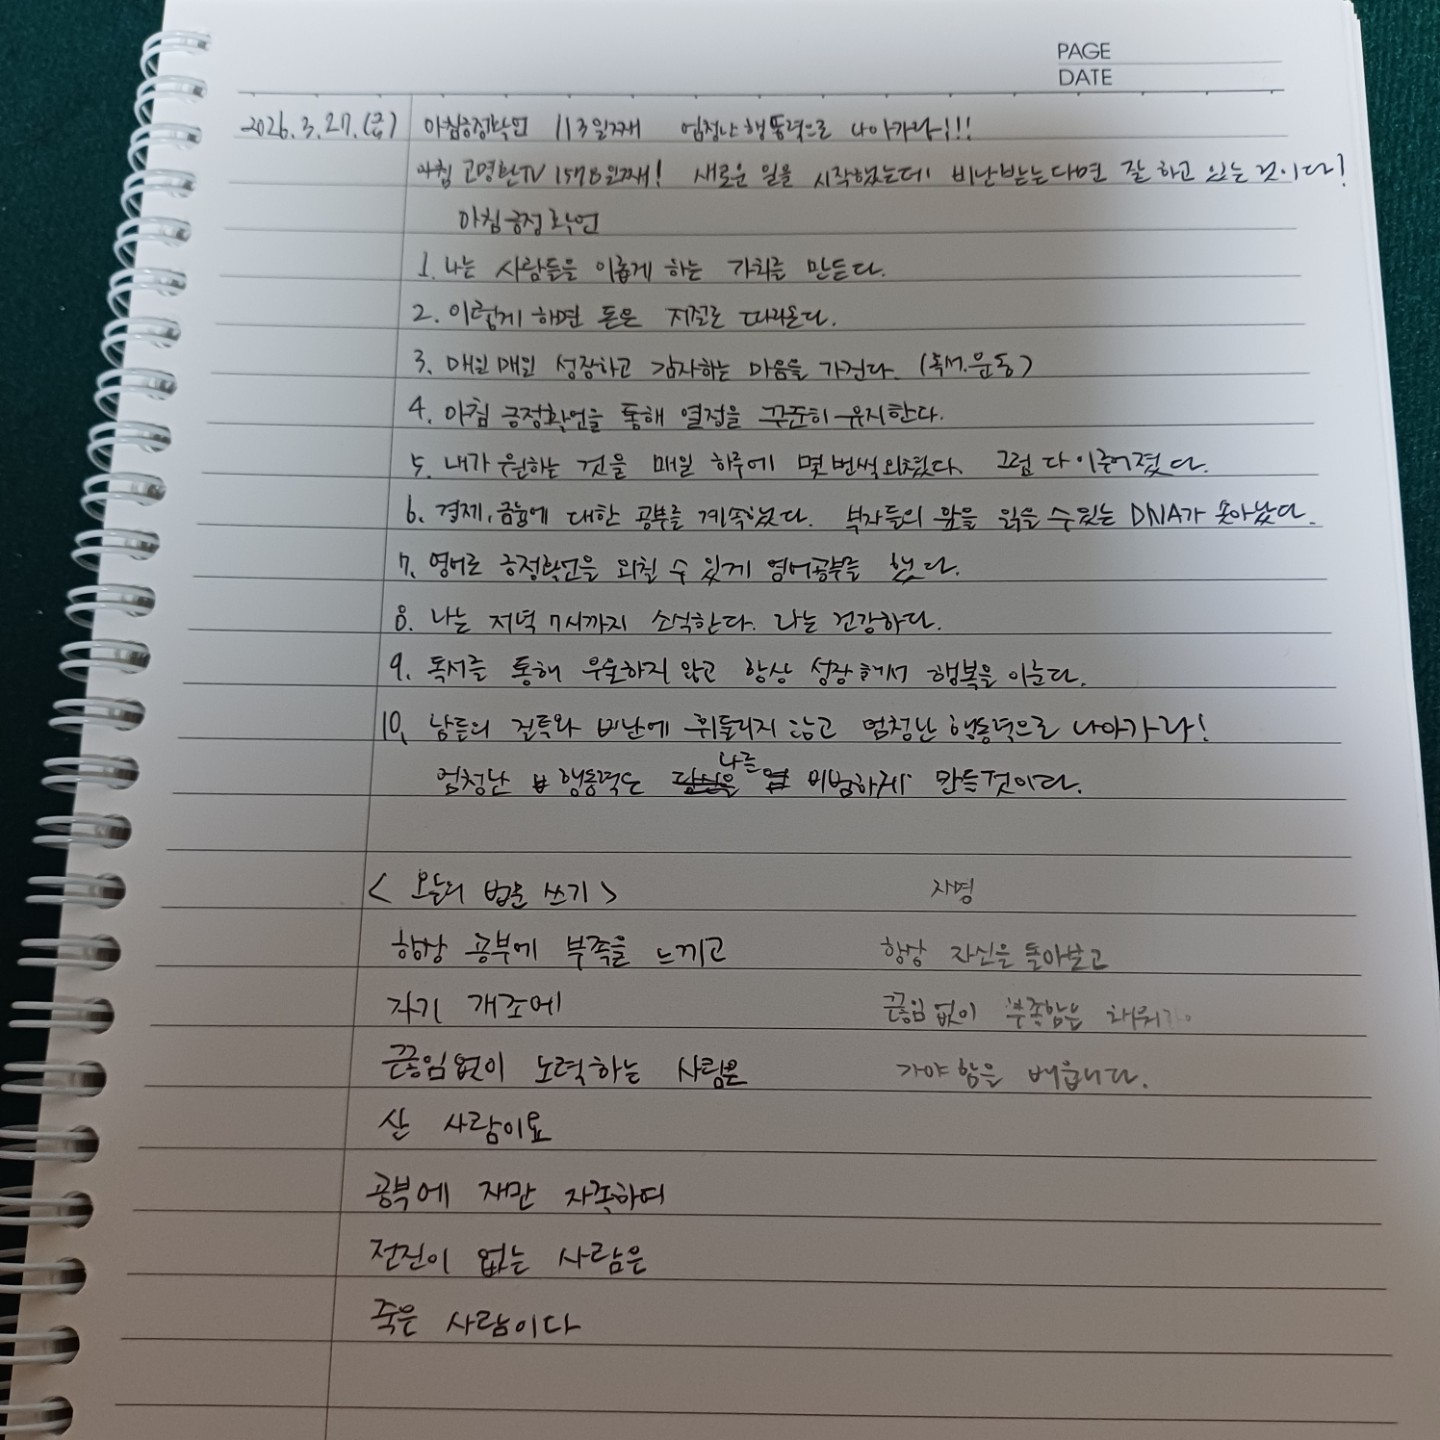 PAGE
DATE
2026.3.27.(금) 아침긍정확언 113일째 엄청난 행동력으로 나아가라!!!
아침 고명환TV 1578일째! 새로운 일을 시작했는데 비난받는다면 잘 하고 있는 것이다!
아침긍정확언
1. 나는 사람들을 이롭게 하는 가치를 만든다.
2. 이렇게 하면 돈은 저절로 따라온다.
3. 매일매일 성장하고 감사하는 마음을 가진다. (독서.운동)
4. 아침 긍정확언을 통해 열정을 꾸준히 유지한다.
5. 내가 원하는 것을 매일 하루에 몇 번씩 외쳤다. 그럼 다 이루어졌다.
6. 경제, 금융에 대한 공부를 계속했다. 부자들의 앞을 읽을 수 있는 DNA가 솟아났다.
7. 영어로 긍정확언을 외칠 수 있게 영어공부를 했다.
8. 나는 저녁 7시까지 소식한다. 나는 건강하다.
9. 독서를 통해 우울하지 않고 항상 성장해서 행복을 이룬다.
10. 남들의 질투와 비난에 휘둘리지 않고 엄청난 행동력으로 나아가라!
엄청난 행동력은 당신을 나를 비범하게 만들것이다.
< 오늘의 법문 쓰기 > 자명
항상 공부에 부족을 느끼고 항상 자신을 돌아보고
자기 개조에 끊임없이 부족함은 채워
끊임없이 노력하는 사람은 가야 함을 배웁니다.
산 사람이요
공부에 재만 자족하여
전진이 없는 사람은
죽은 사람이다